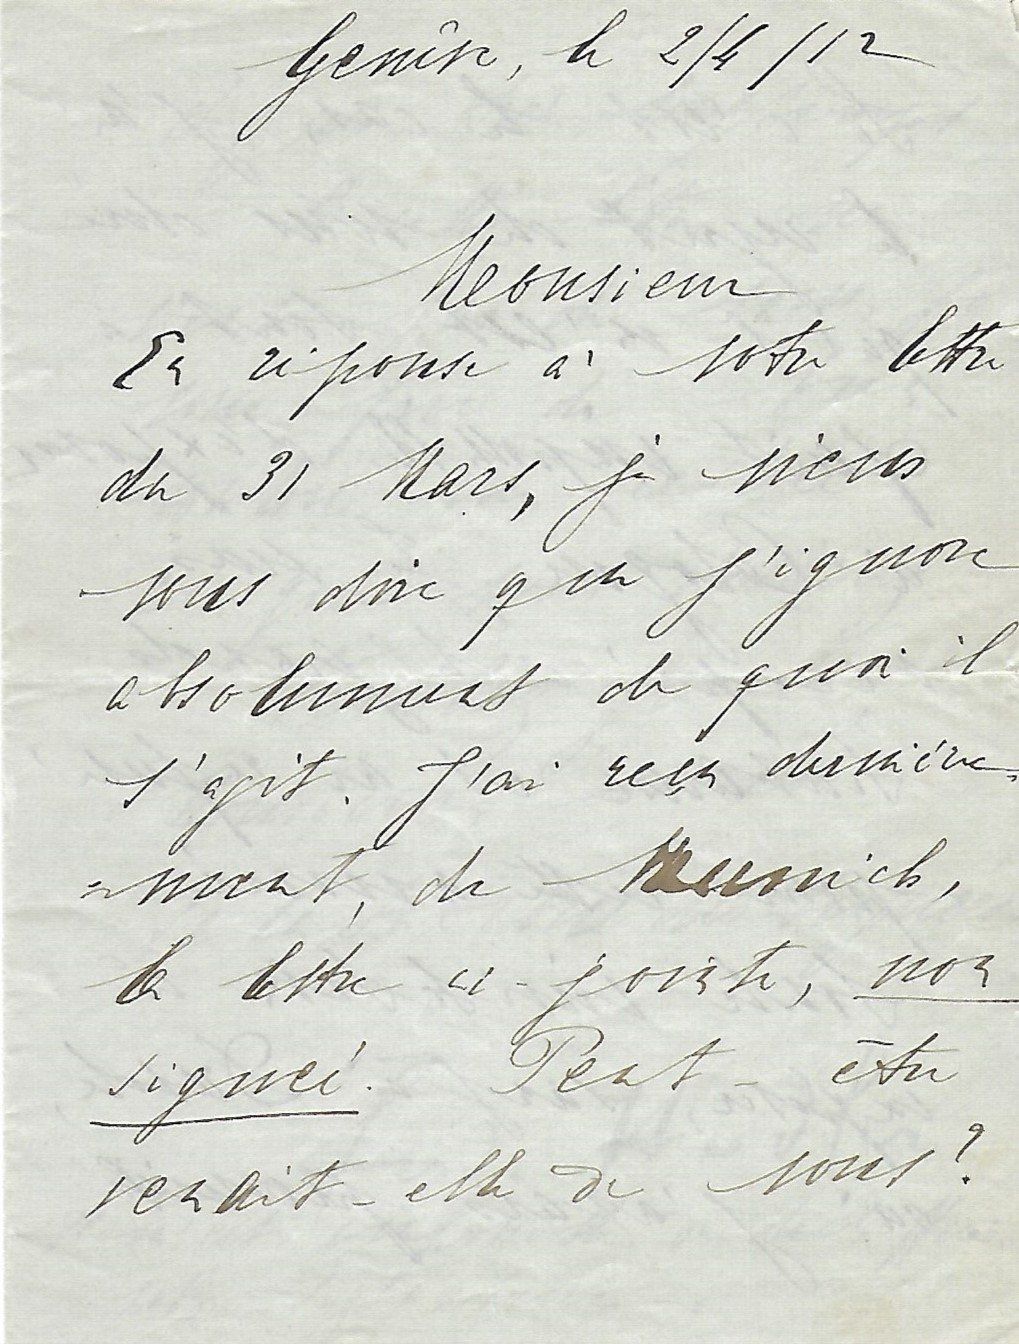 Genève, le 2/4/12
Monsieur
En réponse à votre lettre
du 31 Mars, je viens
vous dire que j'ignore
absolument de quoi il
s'agit. J'ai reçu dernière-
-ment, de Munich,
la lettre ci-jointe, non
signée. Peut-être
venait-elle de vous?